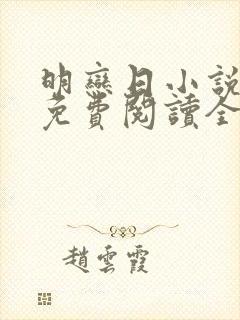 明戀日小說
免費閱讀全
趙雲霞